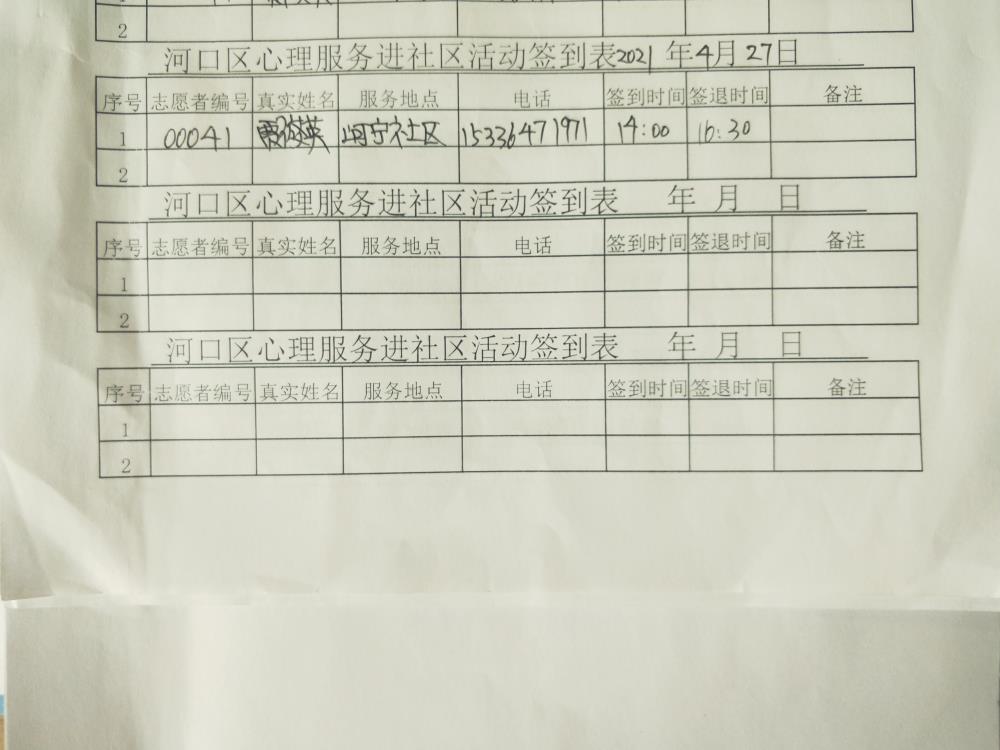 2
河口区心理服务进社区活动签到表2021 年4月27日
序号 志愿者编号 真实姓名 服务地点 电话 签到时间 签退时间 备注
1 00041 河宁社区 15336471971 14:00 16:30
2
河口区心理服务进社区活动签到表 年 月 日
序号 志愿者编号 真实姓名 服务地点 电话 签到时间 签退时间 备注
1
2
河口区心理服务进社区活动签到表 年 月 日
序号 志愿者编号 真实姓名 服务地点 电话 签到时间 签退时间 备注
1
2